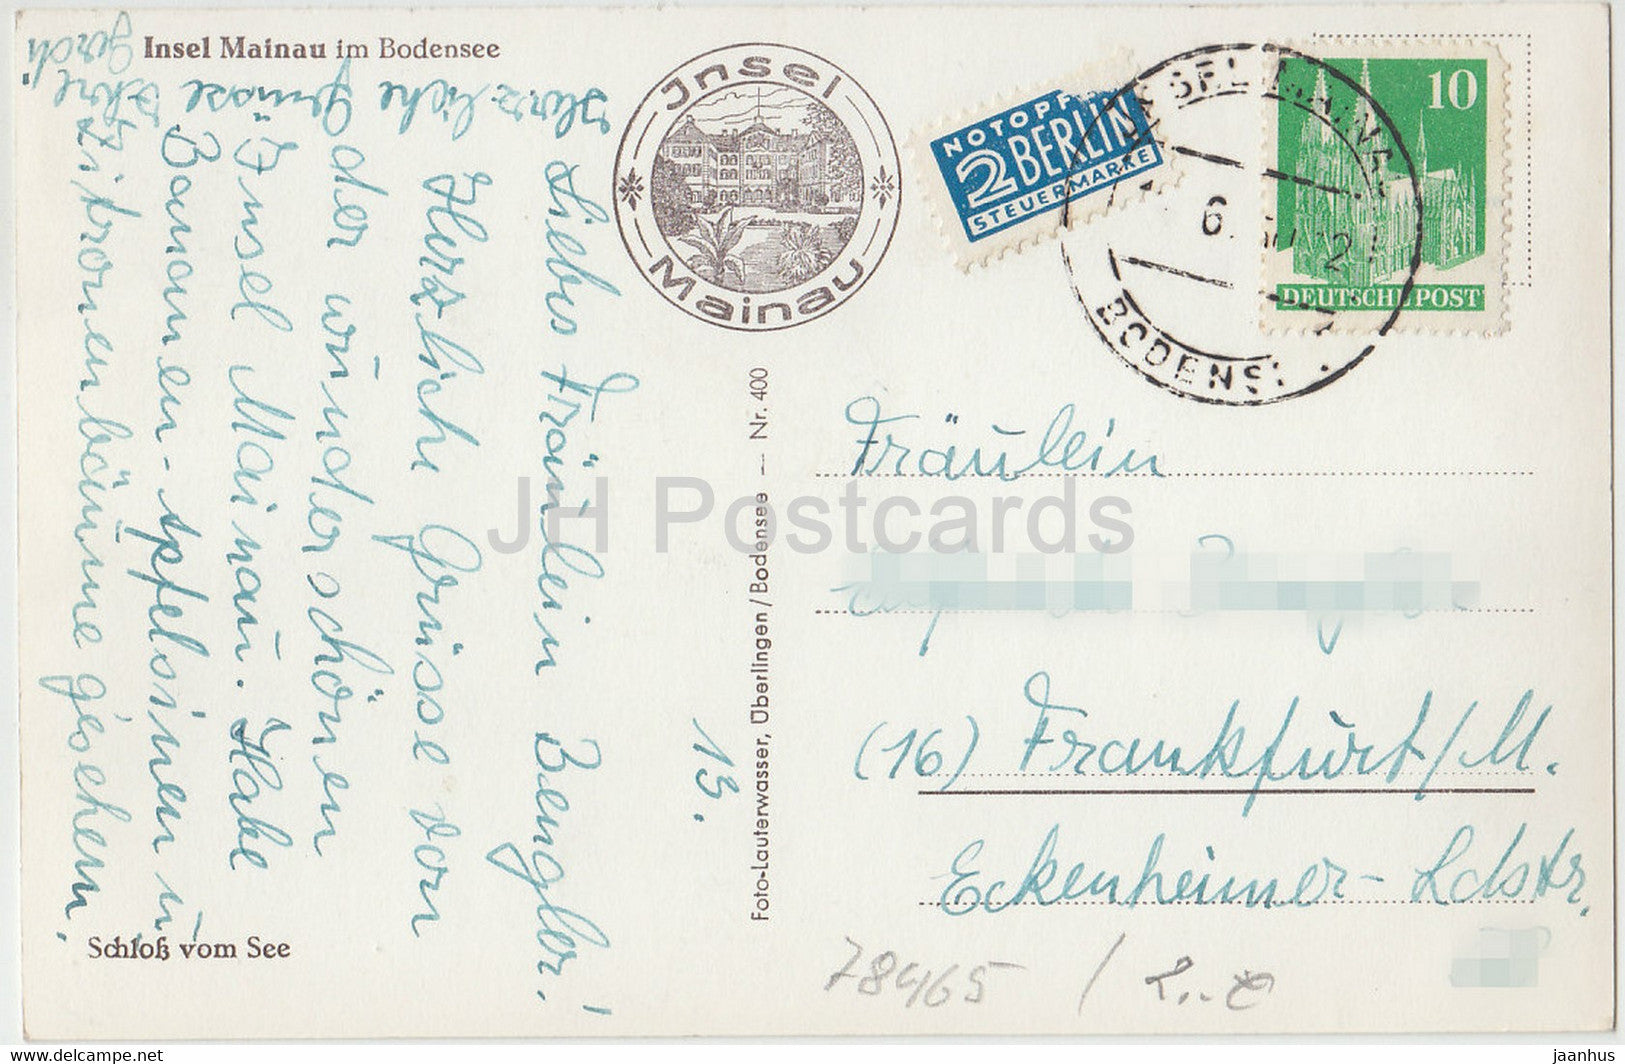 Insel Mainau im Bodensee
Insel
Mainau
NOTOPFER
2 BERLIN
STEUERMARKE
INSEL MAINAU
6. 50.12
BODENS
10
DEUTSCHE POST
13.
Liebes Fräulein Bengler!
Herzliche Grüsse von
der wunderschönen
Insel Mainau. Habe
Bananen- Apfelsinen u.
Zitronenbäume gesehen.
Herzliche Grüsse
Foto-Lauterwasser, Überlingen/Bodensee — Nr. 400
Fräulein
(16) Frankfurt/M.
Eckenheimer-Ldstr.
Schloß vom See
78465 /
JH Postcards
www.delcampe.net
jaanhus